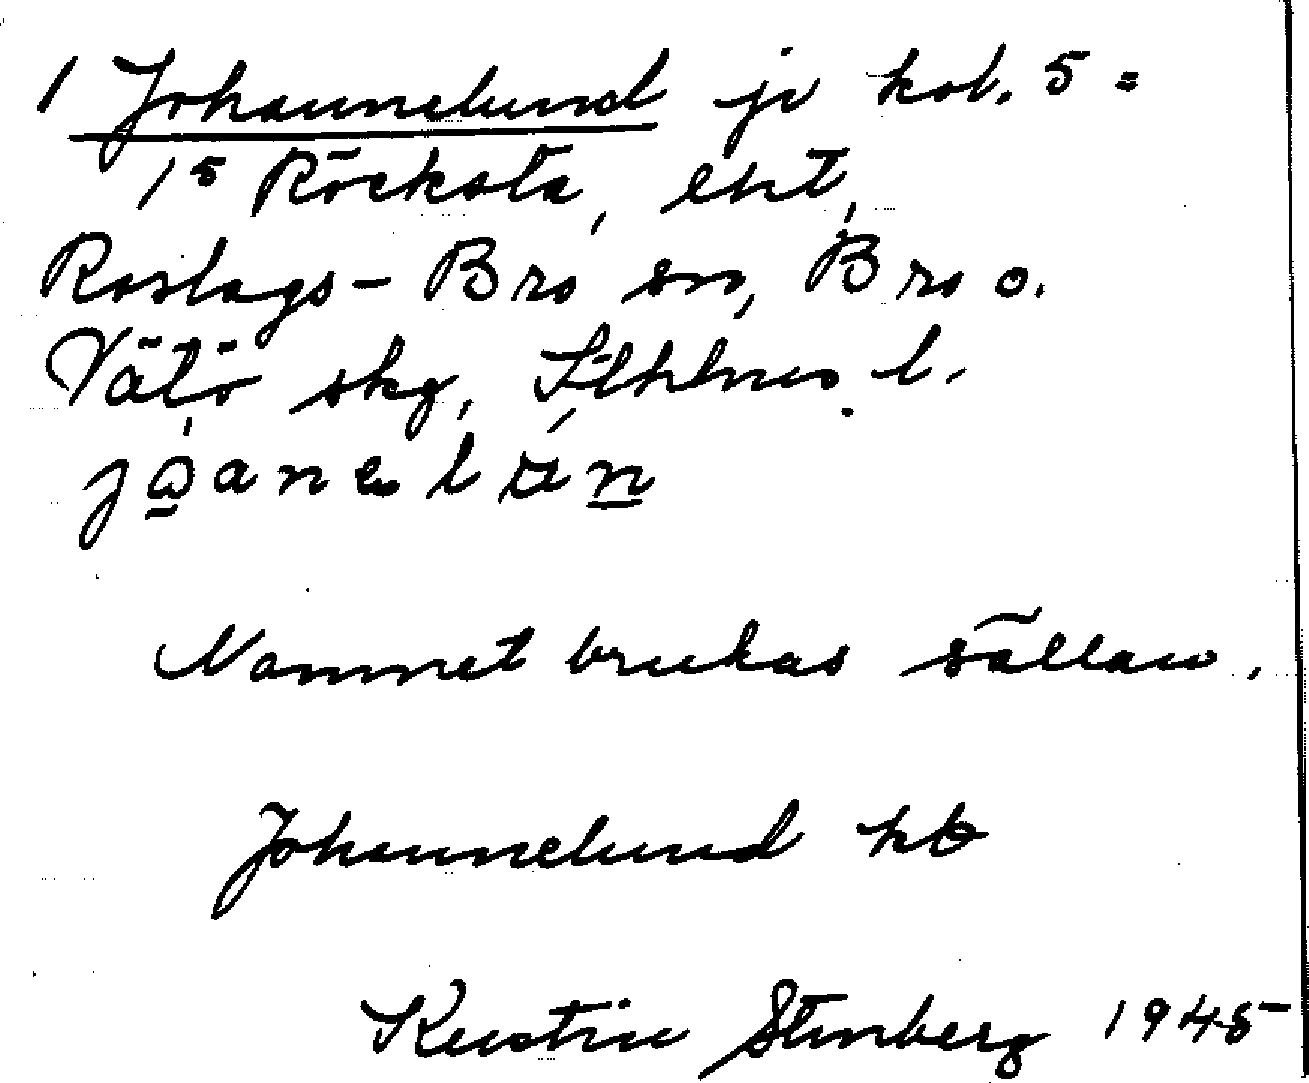 1 Johannelund jv kol. 5 =
1⁵ Röcksta, ent,
Roslags-Bro sn, Bro o.
Vätö skg, Sthlms l.
Namnet brukas sällan.
Johannelund kb
Kerstin Stenberg 1945